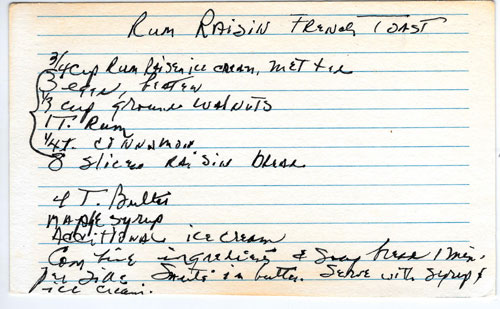 Rum Raisin French Toast
3/4 cup Rum Raisen ice cream, melted
3 eggs, beaten
1/3 cup ground walnuts
1 T. Rum
1/4 t. cinnamon
8 slices raisin bread
4 T. Butter
Maple Syrup
Additional ice cream
Combine ingredients & soag bread 1 min.
per side Sauté in butter. Serve with Syrup &
ice cream.